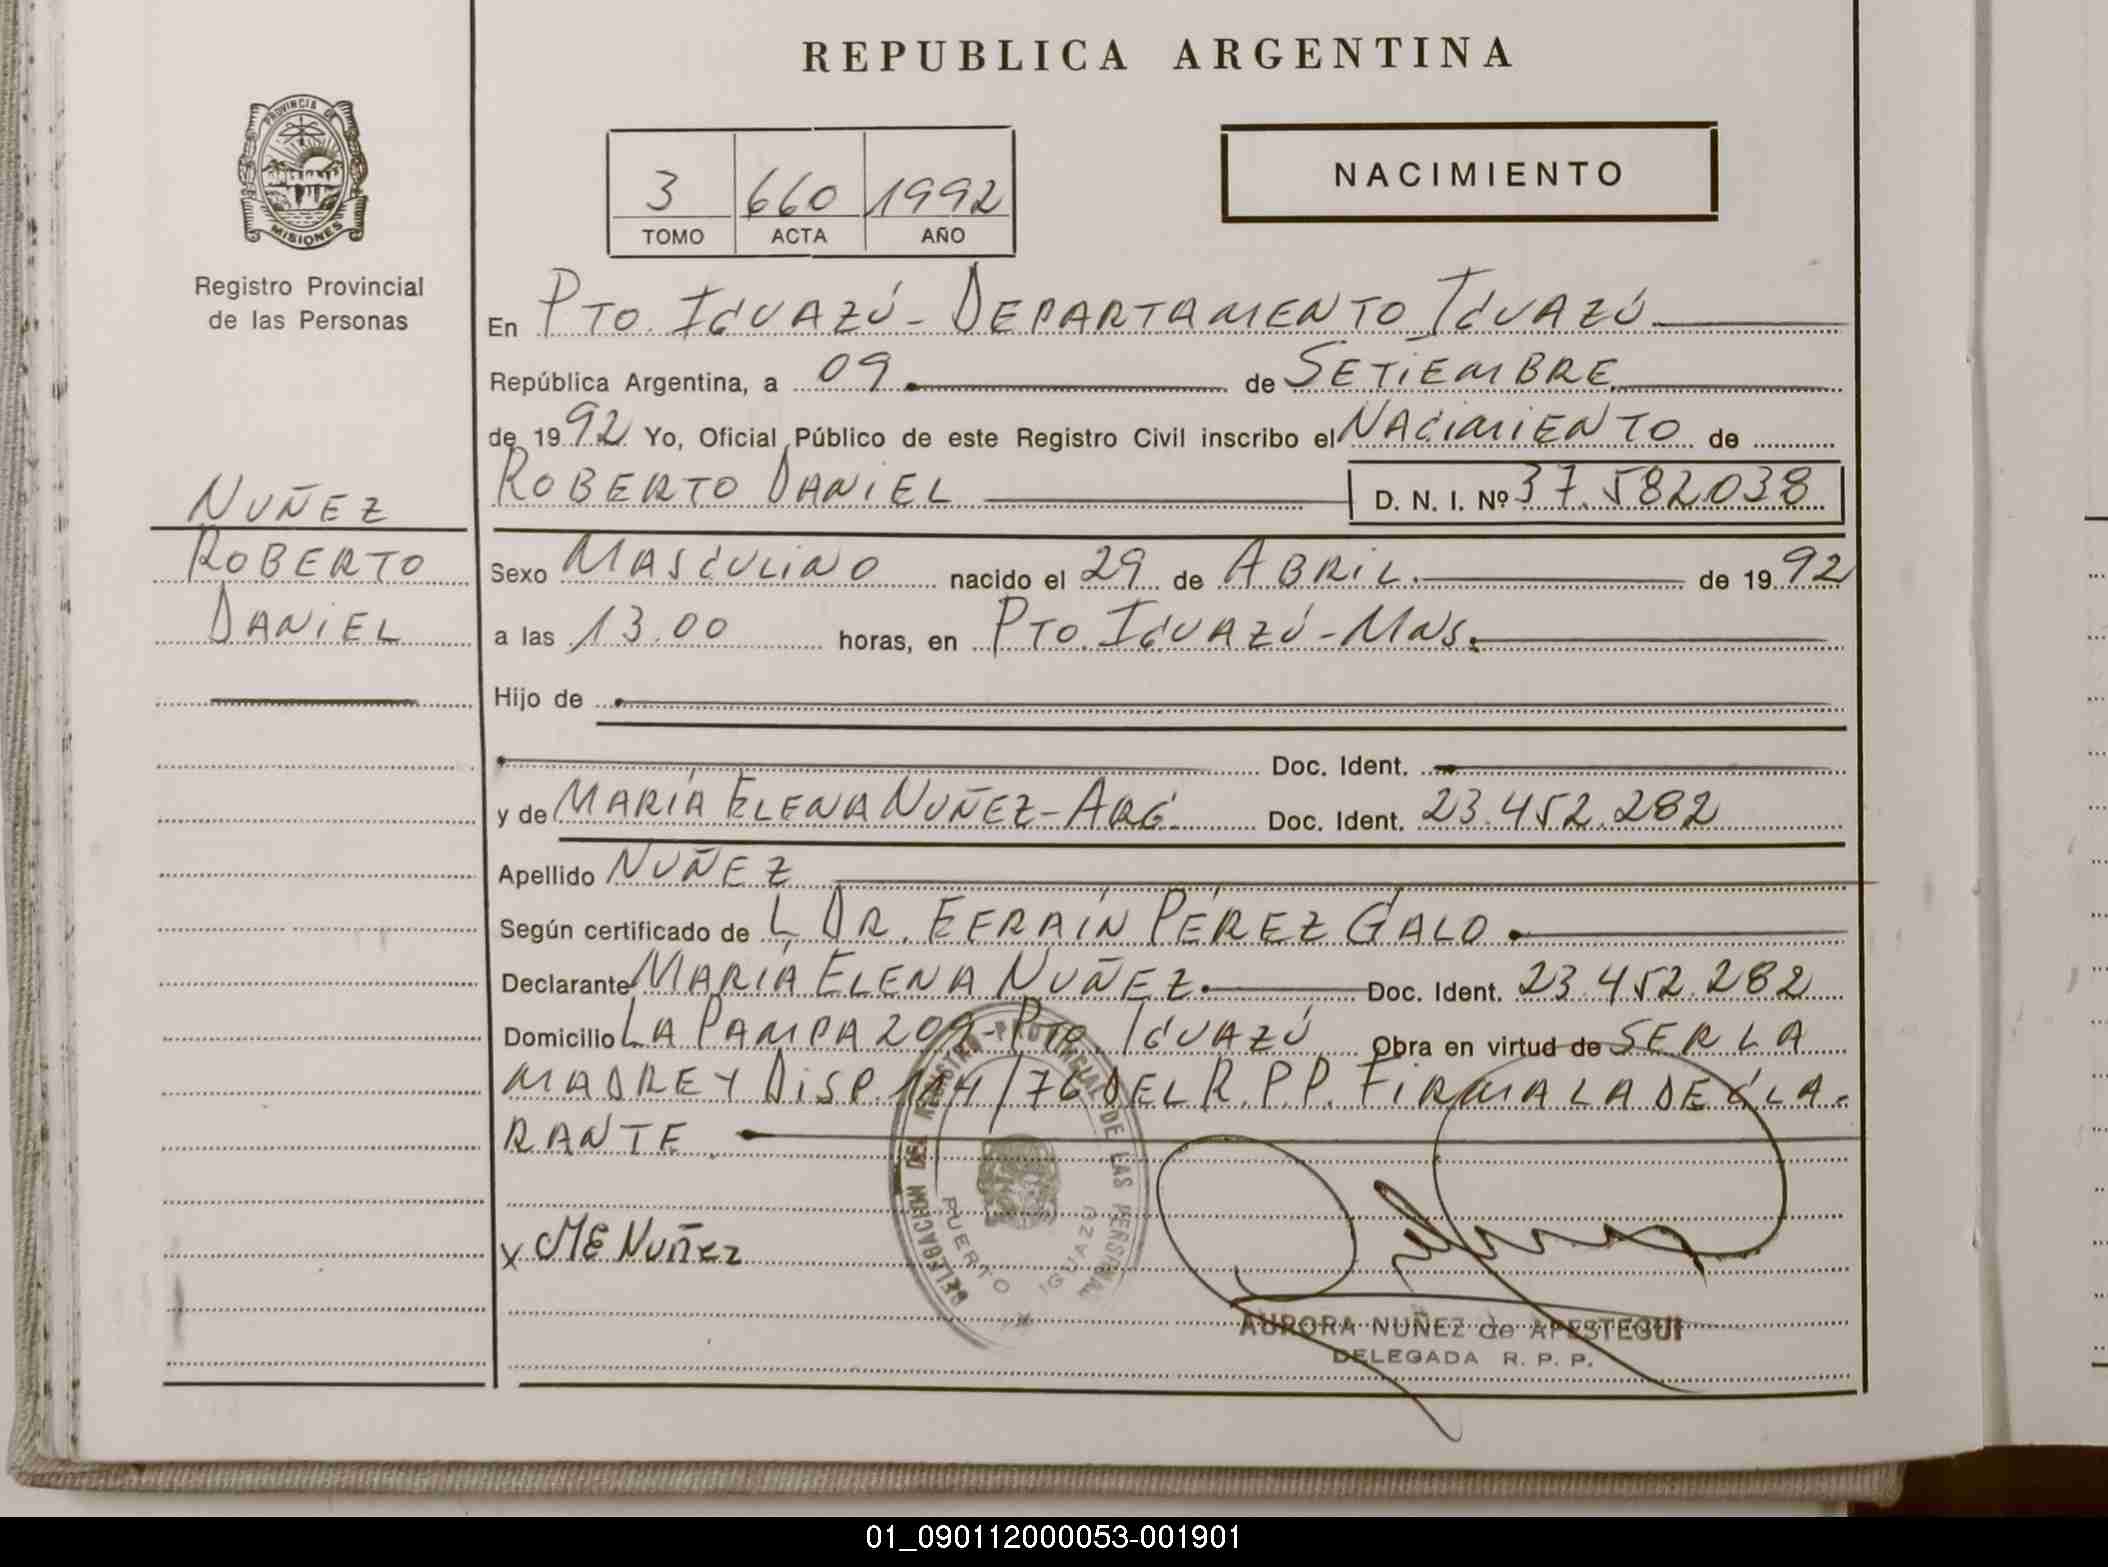 REPUBLICA ARGENTINA
PROVINCIA DE
MISIONES
Registro Provincial
de las Personas
3 660 1992
TOMO ACTA AÑO
NACIMIENTO
En PTO. IGUAZÚ - DEPARTAMENTO IGUAZÚ
República Argentina, a 09 de SETIEMBRE
de 1992 Yo, Oficial Público de este Registro Civil inscribo el NACIMIENTO de
ROBERTO DANIEL D. N. I. Nº 37.582038
NUÑEZ
ROBERTO
DANIEL
Sexo MASCULINO nacido el 29 de ABRIL. de 1992
a las 13.00 horas, en PTO. IGUAZÚ - MNS.
Hijo de
Doc. Ident.
y de MARÍA ELENA NUÑEZ - ARG. Doc. Ident. 23.452.282
Apellido NUÑEZ
Según certificado de L DR. EFRAÍN PÉREZ GALO
Declarante MARÍA ELENA NUÑEZ. Doc. Ident. 23.452.282
Domicilio LA PAMPA 209 - PTO. IGUAZÚ Obra en virtud de SER LA
MADRE Y DISP. 114/76 DEL R.P.P. FIRMA LA DECLA-
RANTE
x ME Nuñez
DELEGACION DEL REGISTRO PROVINCIAL DE LAS PERSONAS
PUERTO IGUAZU
AURORA NUÑEZ de APESTEGUI
DELEGADA R. P. P.
01_090112000053-001901